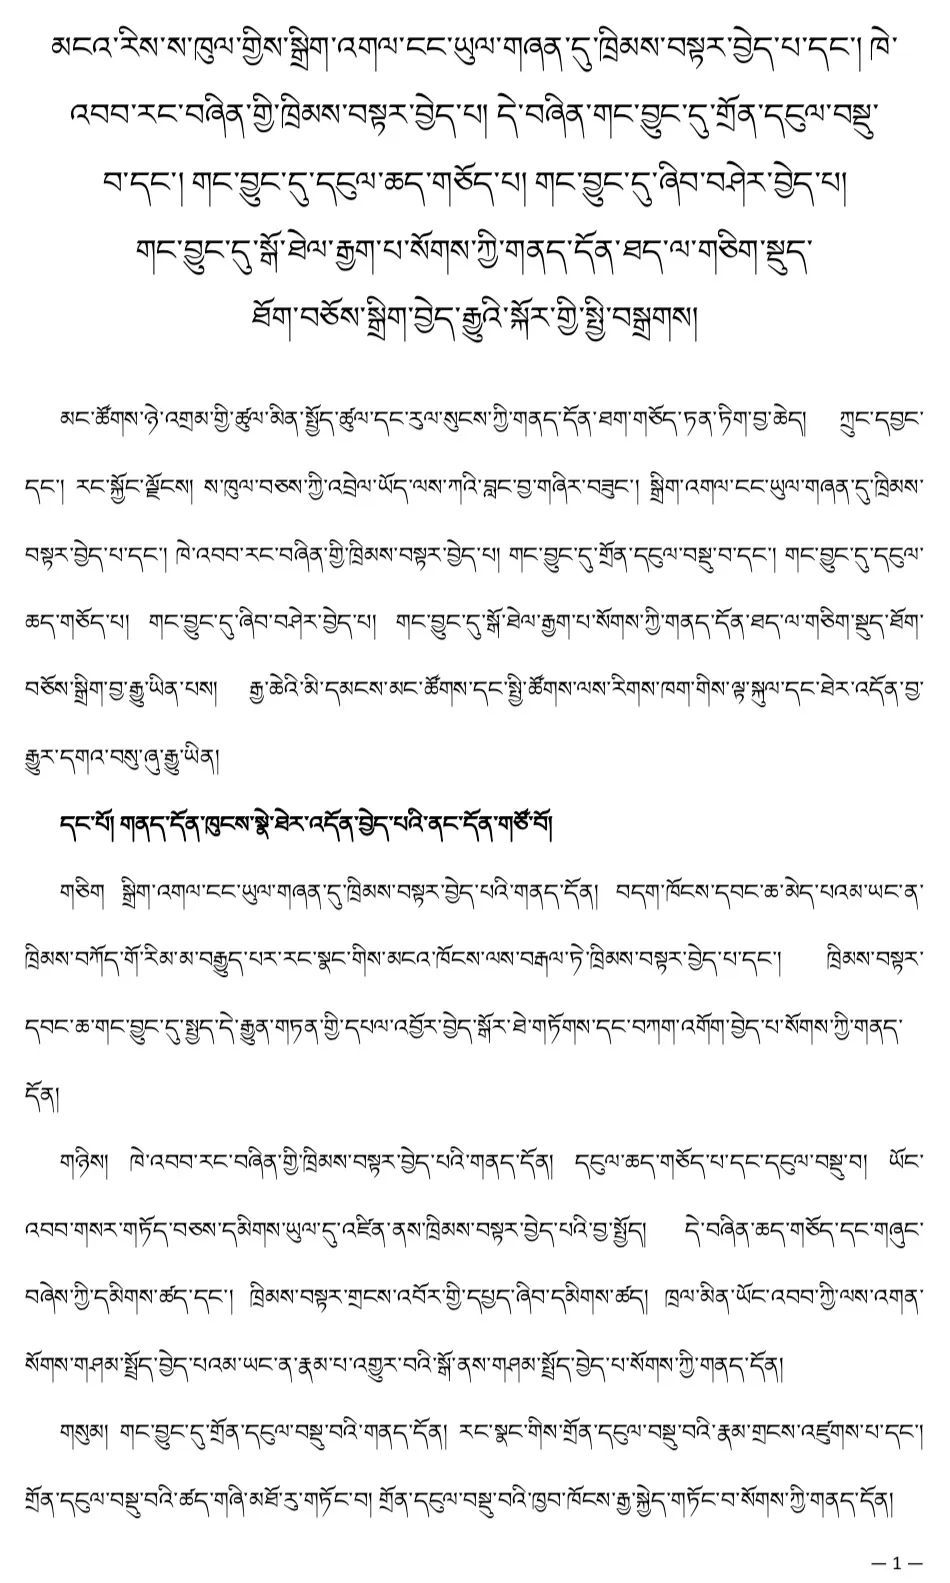 མངའ་རིས་ས་ཁུལ་གྱིས་སྒྲིག་འགལ་ངང་ཡུལ་གཞན་དུ་ཁྲིམས་བསྟར་བྱེད་པ་དང་། ཁེ་
འབབ་རང་བཞིན་གྱི་ཁྲིམས་བསྟར་བྱེད་པ། དེ་བཞིན་གང་བྱུང་དུ་གྲོན་དངུལ་བསྡུ་
བ་དང་། གང་བྱུང་དུ་དངུལ་ཆད་གཅོད་པ། གང་བྱུང་དུ་ཞིབ་བཤེར་བྱེད་པ།
གང་བྱུང་དུ་སྒོ་ཐེལ་རྒྱག་པ་སོགས་ཀྱི་གནད་དོན་ཐད་ལ་གཅིག་སྡུད་
ཐོག་བཅོས་སྒྲིག་བྱེད་རྒྱུའི་སྐོར་གྱི་སྤྱི་བསྒྲགས།
མང་ཚོགས་ཉེ་འགྲམ་གྱི་ཚུལ་མིན་སྤྱོད་ཚུལ་དང་རུལ་སུངས་ཀྱི་གནད་དོན་ཐག་གཅོད་ཏན་ཏིག་བྱ་ཆེད། ཀྲུང་དབྱང་
དང་། རང་སྐྱོང་ལྗོངས། ས་ཁུལ་བཅས་ཀྱི་འབྲེལ་ཡོད་ལས་ཀའི་བླང་བྱ་གཞིར་བཟུང་། སྒྲིག་འགལ་ངང་ཡུལ་གཞན་དུ་ཁྲིམས་
བསྟར་བྱེད་པ་དང་། ཁེ་འབབ་རང་བཞིན་གྱི་ཁྲིམས་བསྟར་བྱེད་པ། གང་བྱུང་དུ་གྲོན་དངུལ་བསྡུ་བ་དང་། གང་བྱུང་དུ་དངུལ་
ཆད་གཅོད་པ། གང་བྱུང་དུ་ཞིབ་བཤེར་བྱེད་པ། གང་བྱུང་དུ་སྒོ་ཐེལ་རྒྱག་པ་སོགས་ཀྱི་གནད་དོན་ཐད་ལ་གཅིག་སྡུད་ཐོག་
བཅོས་སྒྲིག་བྱ་རྒྱུ་ཡིན་པས། རྒྱ་ཆེའི་མི་དམངས་མང་ཚོགས་དང་སྤྱི་ཚོགས་ལས་རིགས་ཁག་གིས་ལྟ་སྐུལ་དང་ཐེར་འདོན་བྱ་
རྒྱུར་དགའ་བསུ་ཞུ་རྒྱུ་ཡིན།
དང་པོ། གནད་དོན་ཁུངས་སྣེ་ཐེར་འདོན་བྱེད་པའི་ནང་དོན་གཙོ་བོ།
གཅིག སྒྲིག་འགལ་ངང་ཡུལ་གཞན་དུ་ཁྲིམས་བསྟར་བྱེད་པའི་གནད་དོན། བདག་ཁོངས་དབང་ཆ་མེད་པའམ་ཡང་ན་
ཁྲིམས་བཀོད་གོ་རིམ་མ་བརྒྱུད་པར་རང་སྣང་གིས་མངའ་ཁོངས་ལས་བརྒལ་ཏེ་ཁྲིམས་བསྟར་བྱེད་པ་དང་། ཁྲིམས་བསྟར་
དབང་ཆ་གང་བྱུང་དུ་སྤྱད་དེ་རྒྱུན་གཏན་གྱི་དཔལ་འབྱོར་བྱེད་སྒོར་ཐེ་གཏོགས་དང་བཀག་འགོག་བྱེད་པ་སོགས་ཀྱི་གནད་
དོན།
གཉིས། ཁེ་འབབ་རང་བཞིན་གྱི་ཁྲིམས་བསྟར་བྱེད་པའི་གནད་དོན། དངུལ་ཆད་གཅོད་པ་དང་དངུལ་བསྡུ་བ། ཡོང་
འབབ་གསར་གཏོད་བཅས་དམིགས་ཡུལ་དུ་འཛིན་ནས་ཁྲིམས་བསྟར་བྱེད་པའི་བྱ་སྤྱོད། དེ་བཞིན་ཆད་གཅོད་དང་གཞུང་
བཞེས་ཀྱི་དམིགས་ཚད་དང་། ཁྲིམས་བསྟར་གྲངས་འབོར་གྱི་དཔྱད་ཞིབ་དམིགས་ཚད། ཁྲལ་མིན་ཡོང་འབབ་ཀྱི་ལས་འགན་
སོགས་གཤམ་སྤྲོད་བྱེད་པའམ་ཡང་ན་རྣམ་པ་འགྱུར་བའི་སྒོ་ནས་གཤམ་སྤྲོད་བྱེད་པ་སོགས་ཀྱི་གནད་དོན།
གསུམ། གང་བྱུང་དུ་གྲོན་དངུལ་བསྡུ་བའི་གནད་དོན། རང་སྣང་གིས་གྲོན་དངུལ་བསྡུ་བའི་རྣམ་གྲངས་འཛུགས་པ་དང་།
གྲོན་དངུལ་བསྡུ་བའི་ཚད་གཞི་མཐོ་རུ་གཏོང་བ། གྲོན་དངུལ་བསྡུ་བའི་ཁྱབ་ཁོངས་རྒྱ་སྐྱེད་གཏོང་བ་སོགས་ཀྱི་གནད་དོན།
— 1 —